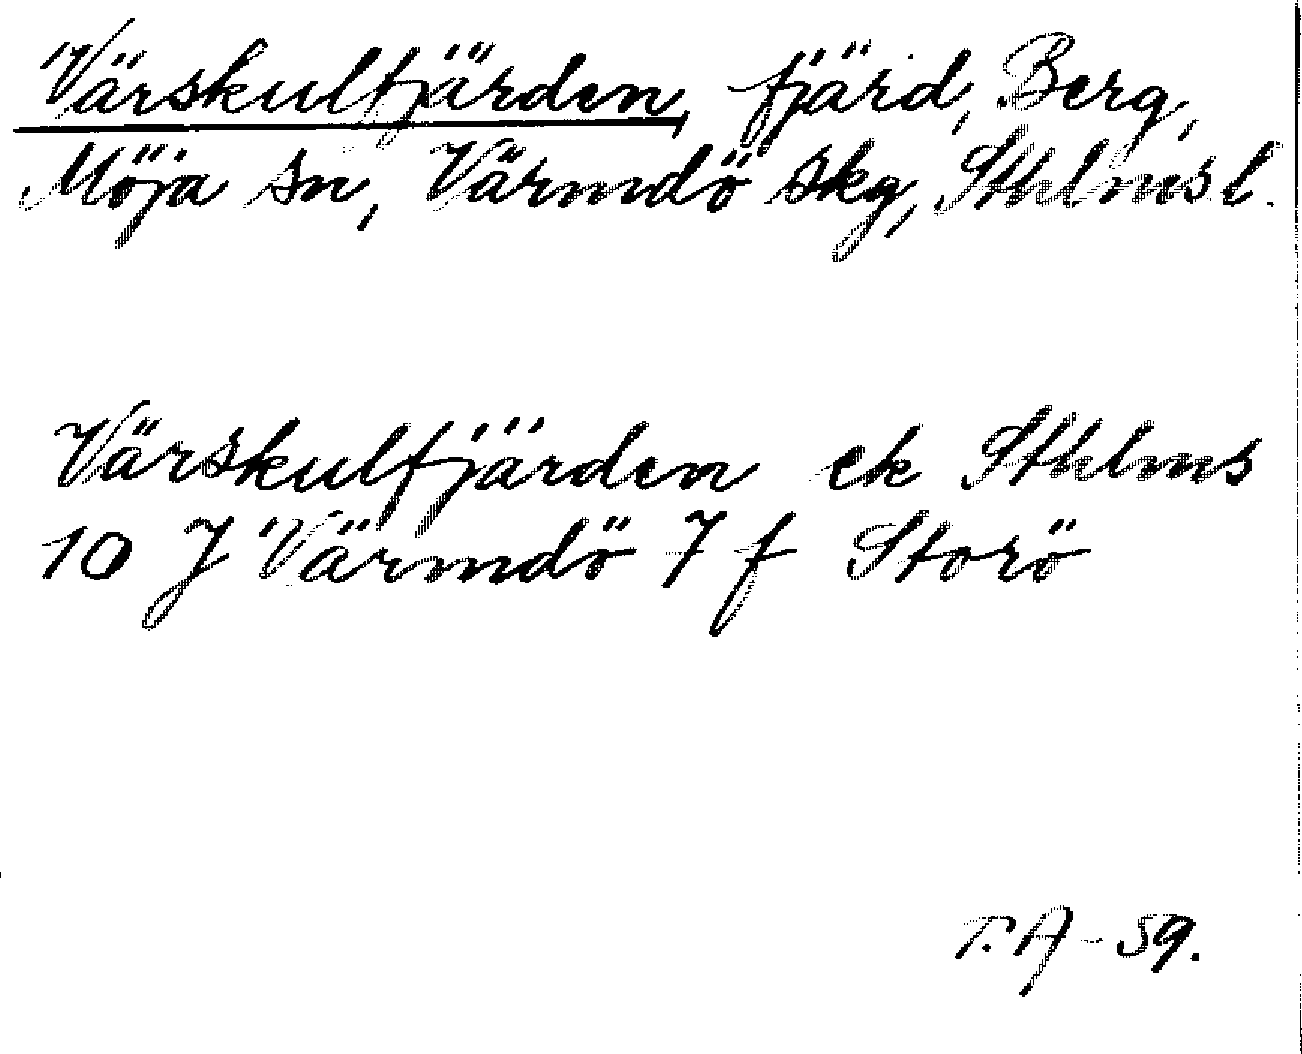 Värskulfjärden, fjärd, Berg,
Möja sn, Värmdö skg, Sthlms l.
Värskulfjärden ek Sthlms
10 J Värmdö 7 f Storö
T. A - 59.